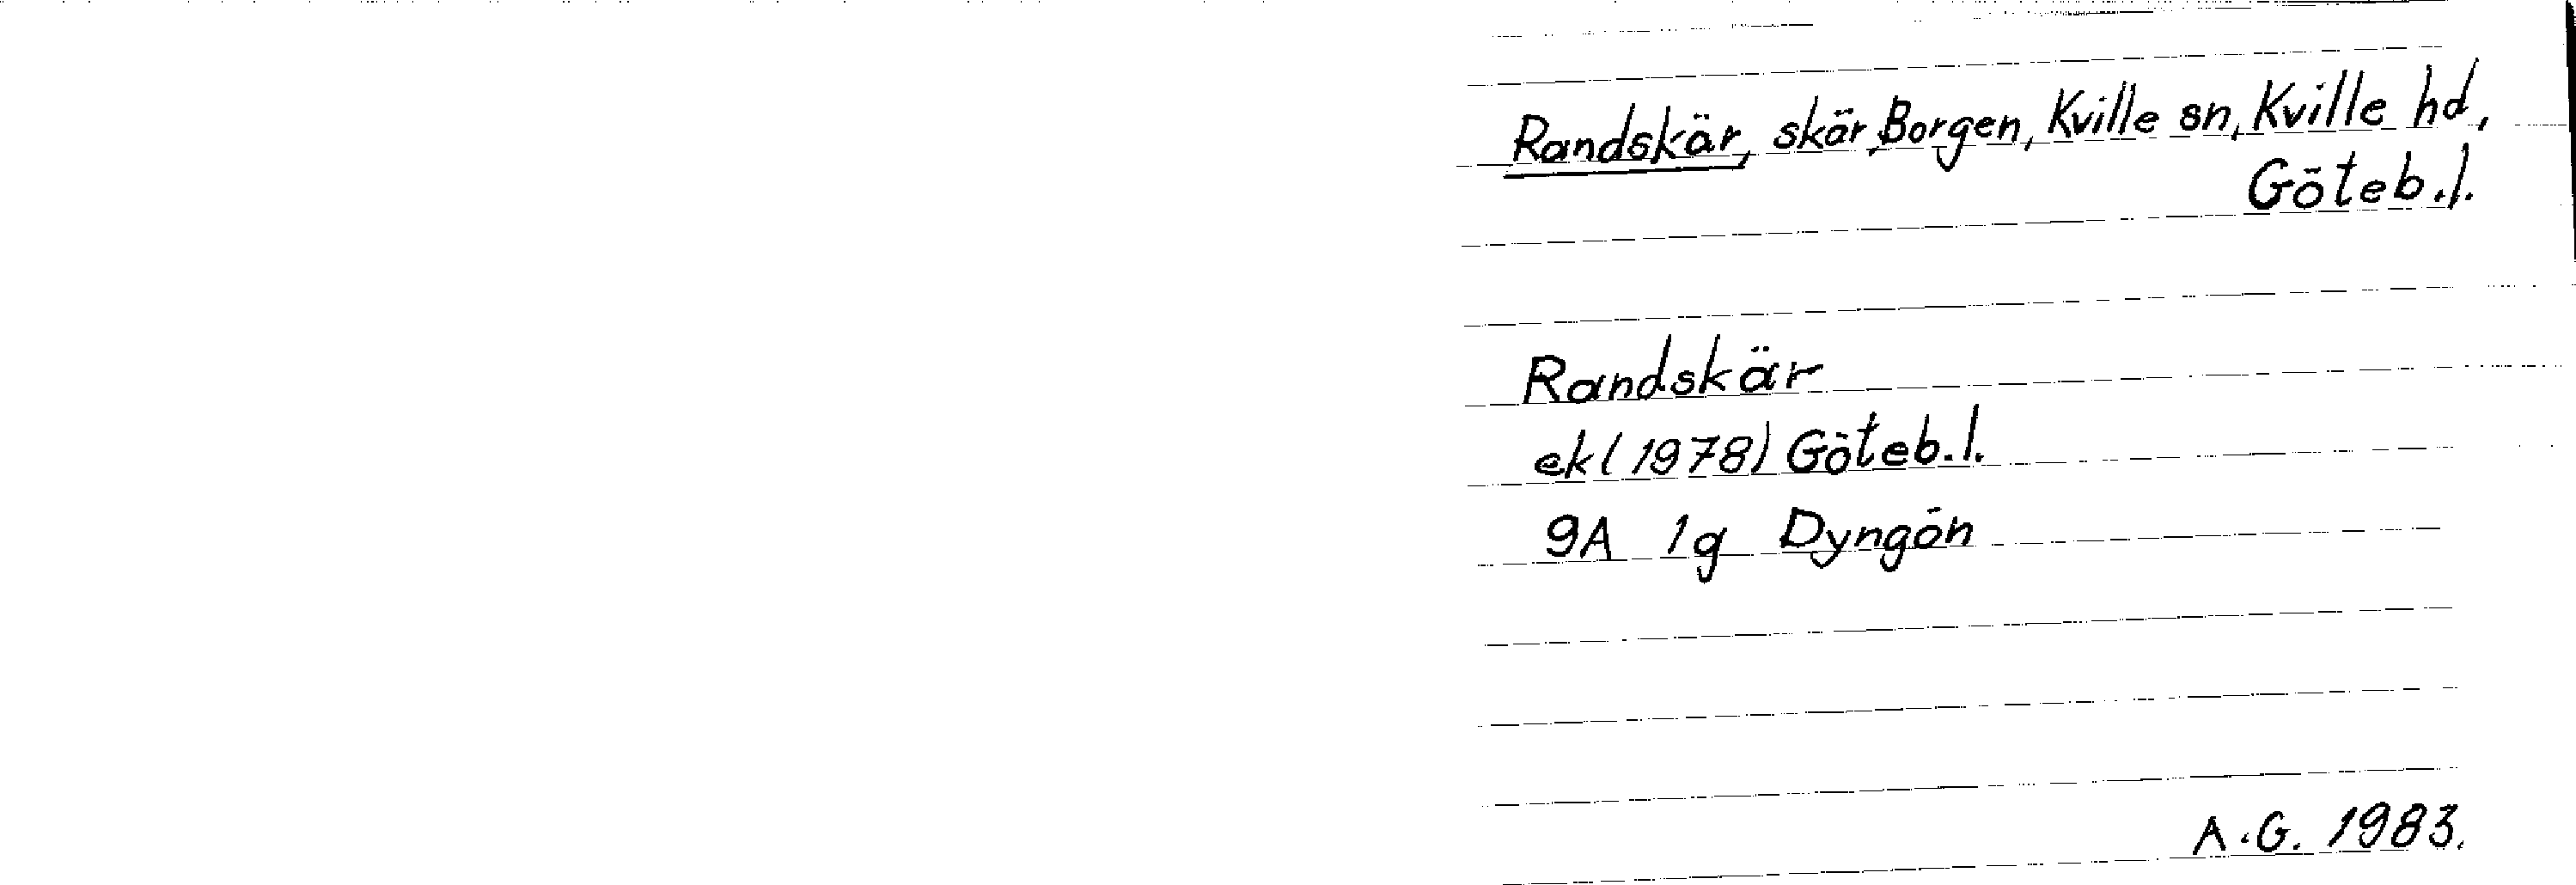 Randskär, skär, Borgen, Kville sn, Kville hd,
Göteb.l.
Randskär
ekl (1978) Göteb.l.
9A 1g Dyngön
A.G. 1983.